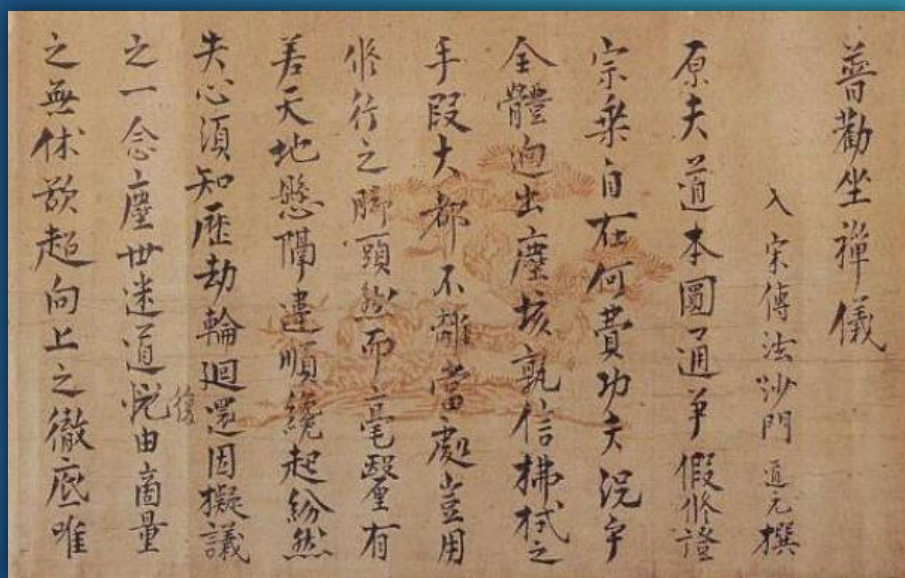 普勸坐禪儀
入宋傳法沙門道元撰
原夫道本圓通爭假修證
宗乘自在何費功夫況乎
全體逈出塵埃孰信拂拭之
手段大都不離當處豈用
修行之脚頭然而毫釐有
差天地懸隔違順纔起紛然
失心須知歷劫輪廻還因擬議
之一念塵世迷道復由商量
之無休欲超向上之徹底唯